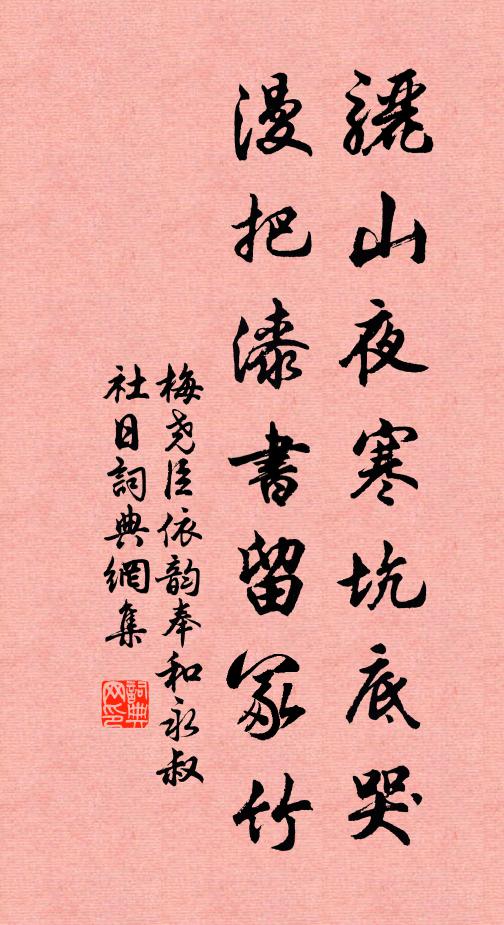 驪山夜寒坑底哭
漫把漆書留冢竹
梅堯臣依韵奉和永叔
社日詞典網集
詞典网印